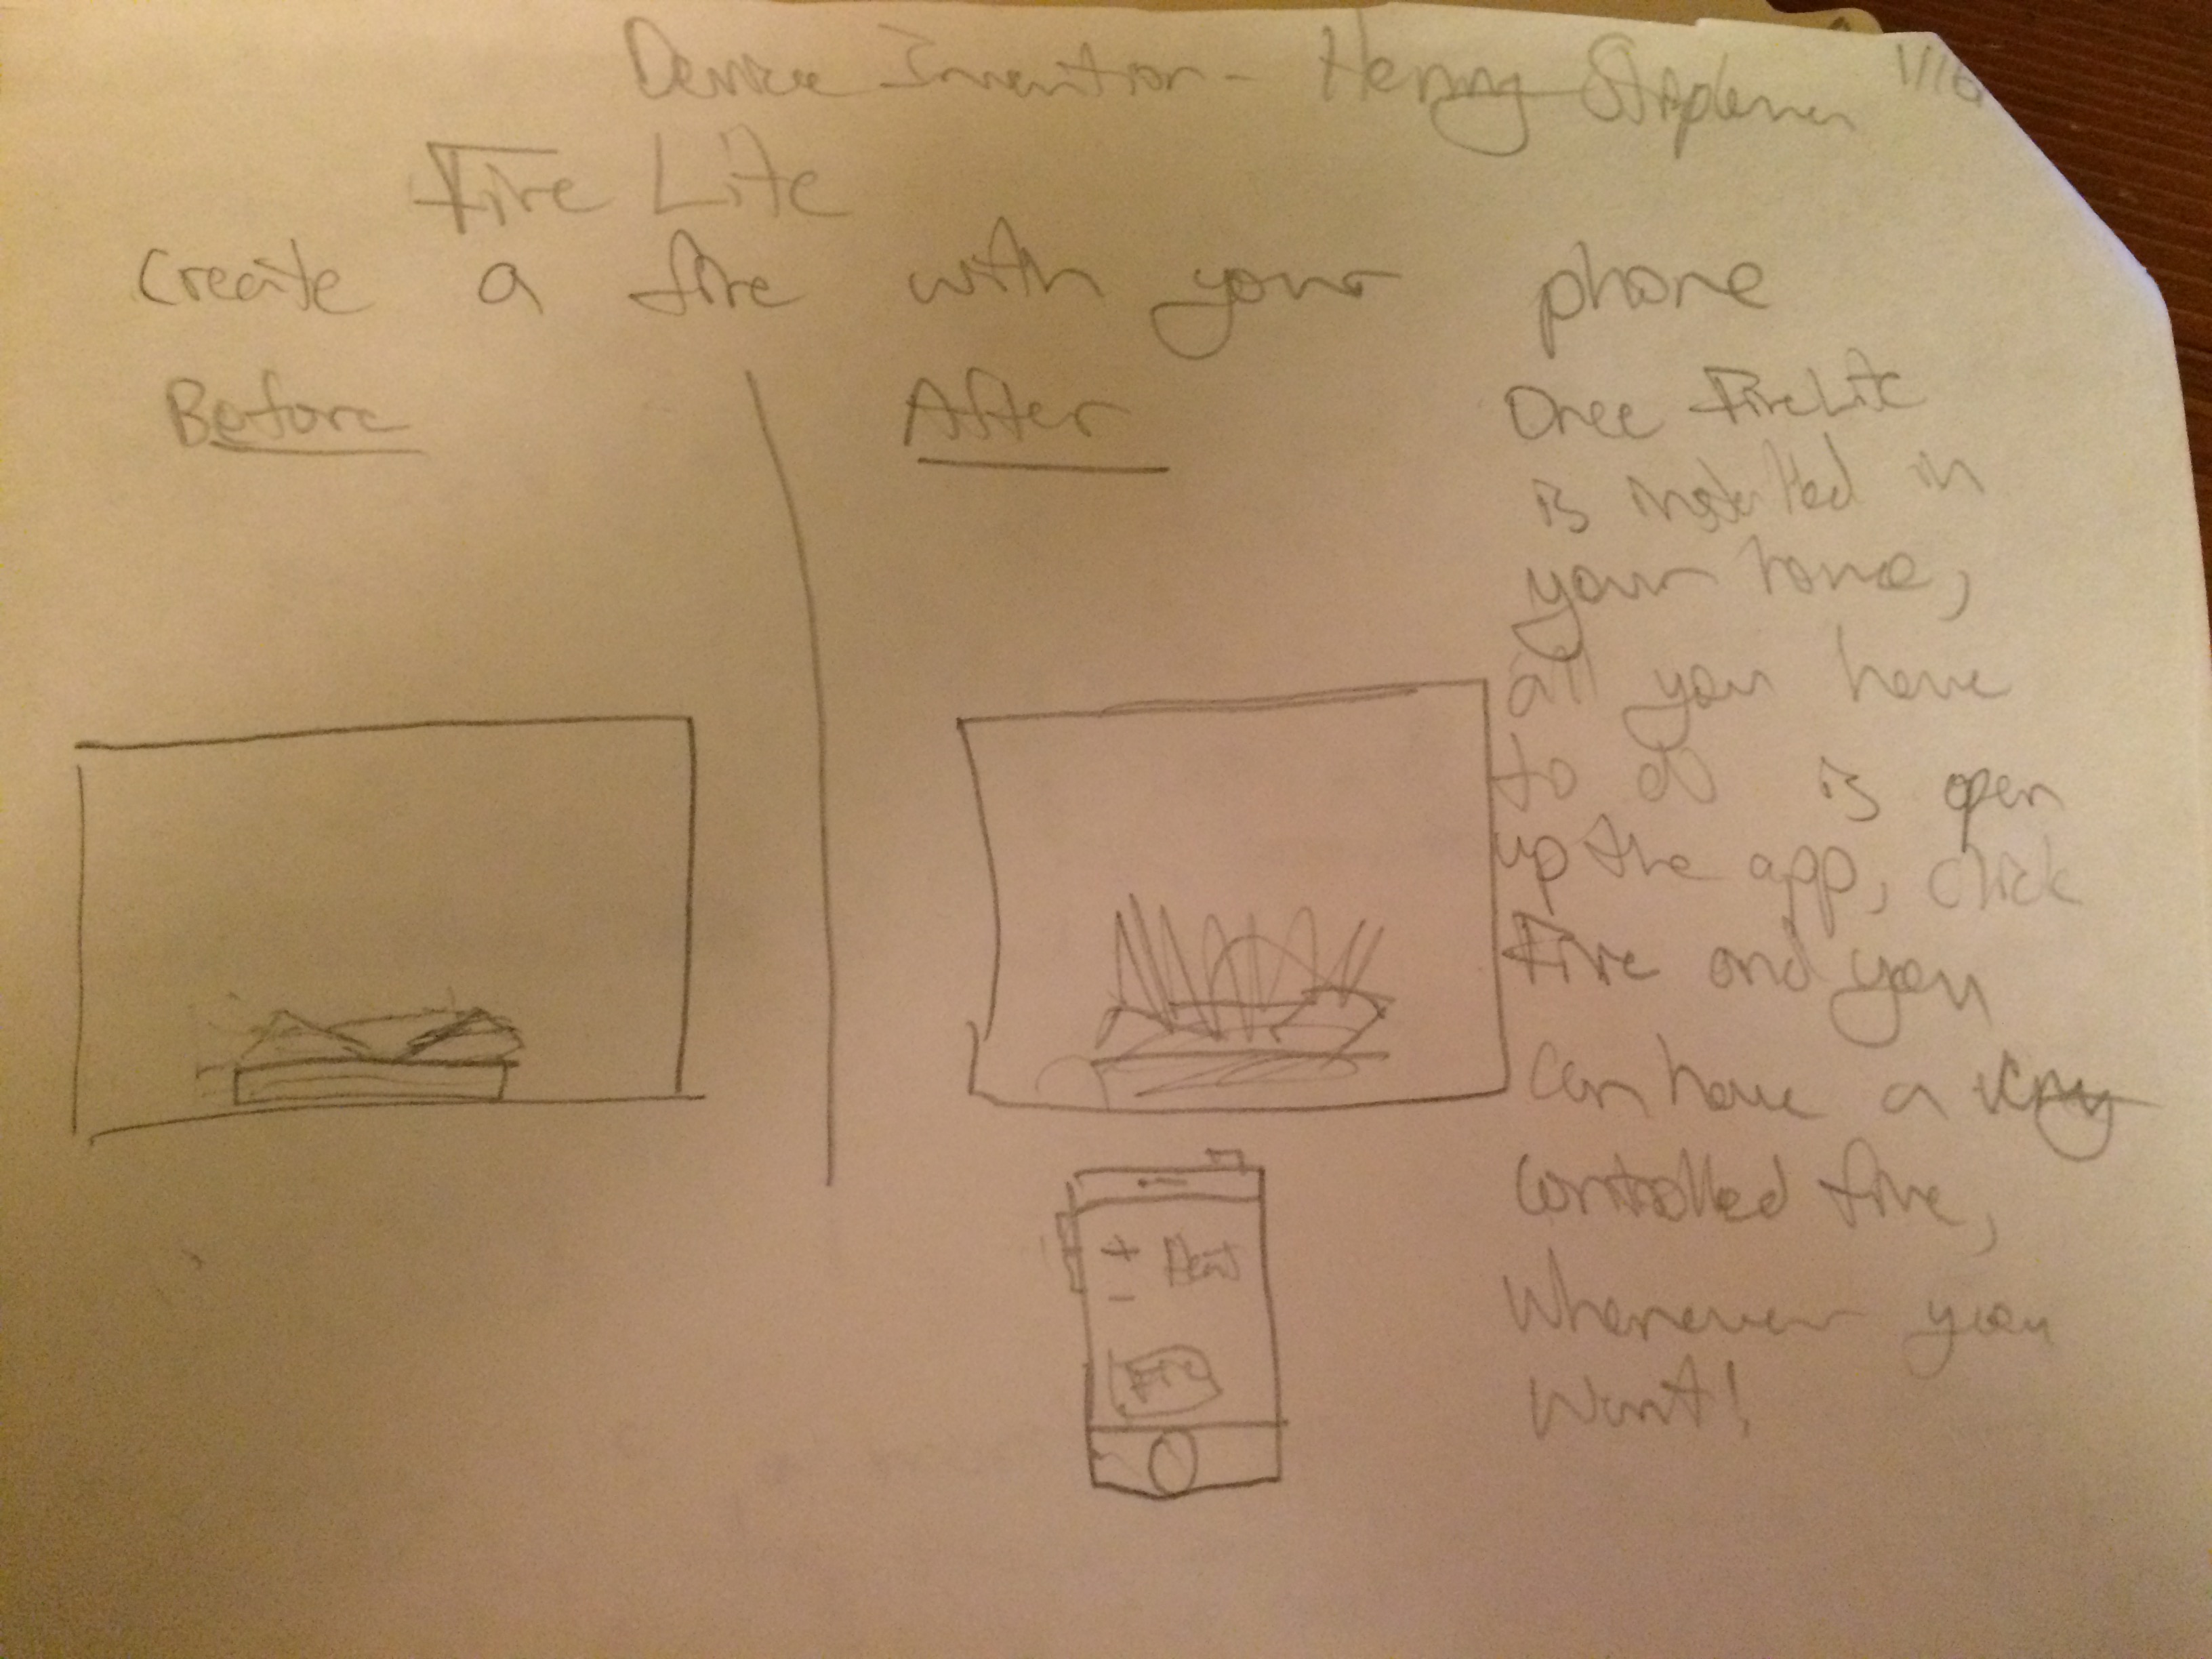 Device Invention - Henry 1/16
Fire Lite
Create a fire with your phone
Before
After
Once FireLite
is installed in
your home,
all you have
to do is open
up the app, click
Fire and you
can have a very
controlled fire,
whenever you
want!
+ Heat
-
Fire